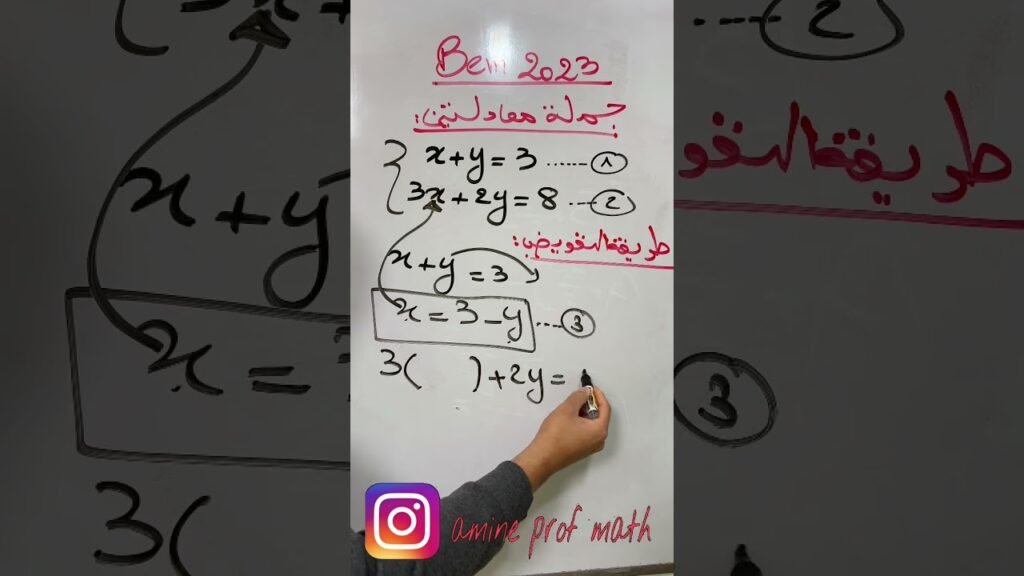 Bem 2023
جملة معادلتين:
x+y=3 ...... ①
3x+2y=8 ... ②
طريقة التعويض:
x+y=3
x=3-y .... ③
3( )+2y=
amine prof math